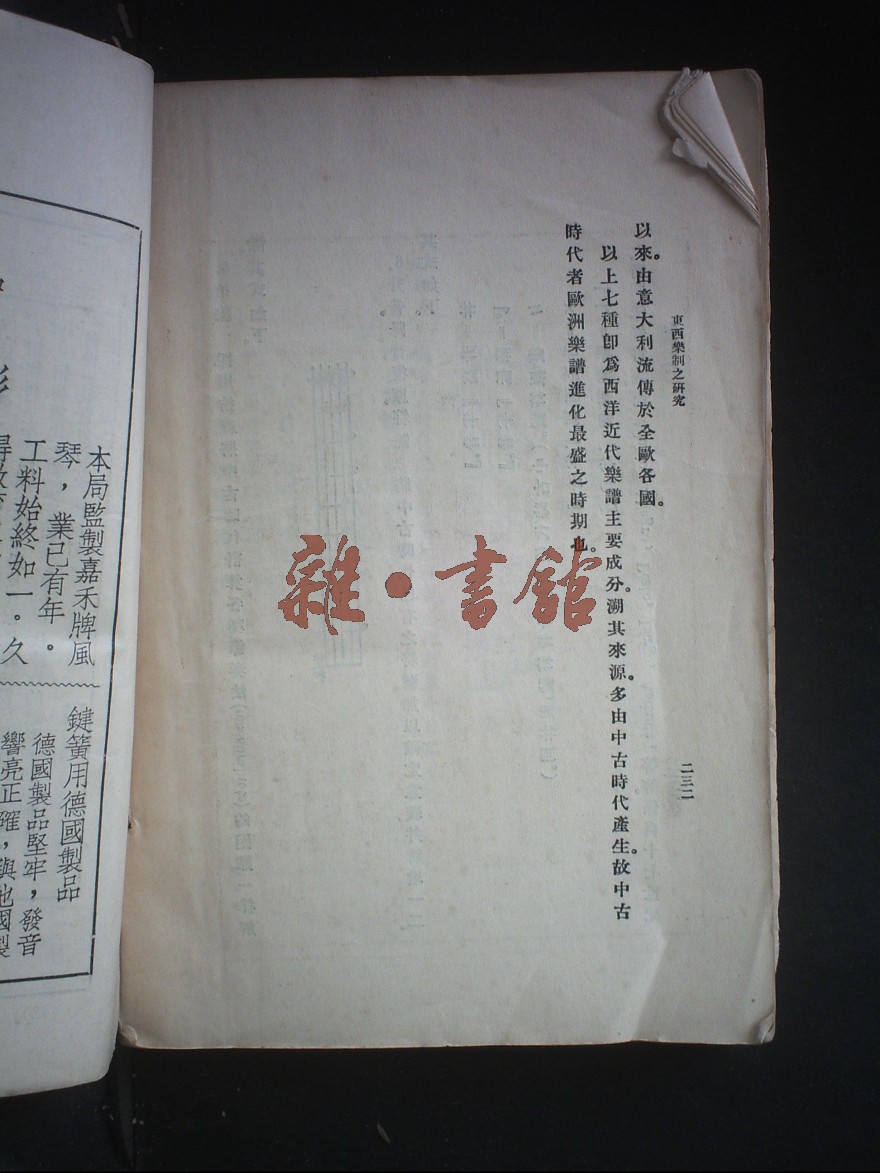 東西樂制之研究
二三二
以來。由意大利流傳於全歐各國。
以上七種卽爲西洋近代樂譜主要成分。溯其來源。多由中古時代產生。故中古
時代者歐洲樂譜進化最盛之時期也。
雜·書館
本局監製嘉禾牌風
琴，業已有年。
工料始終如一。久
鍵簧用德國製品
德國製品堅牢，發音
響亮正確，與他國製